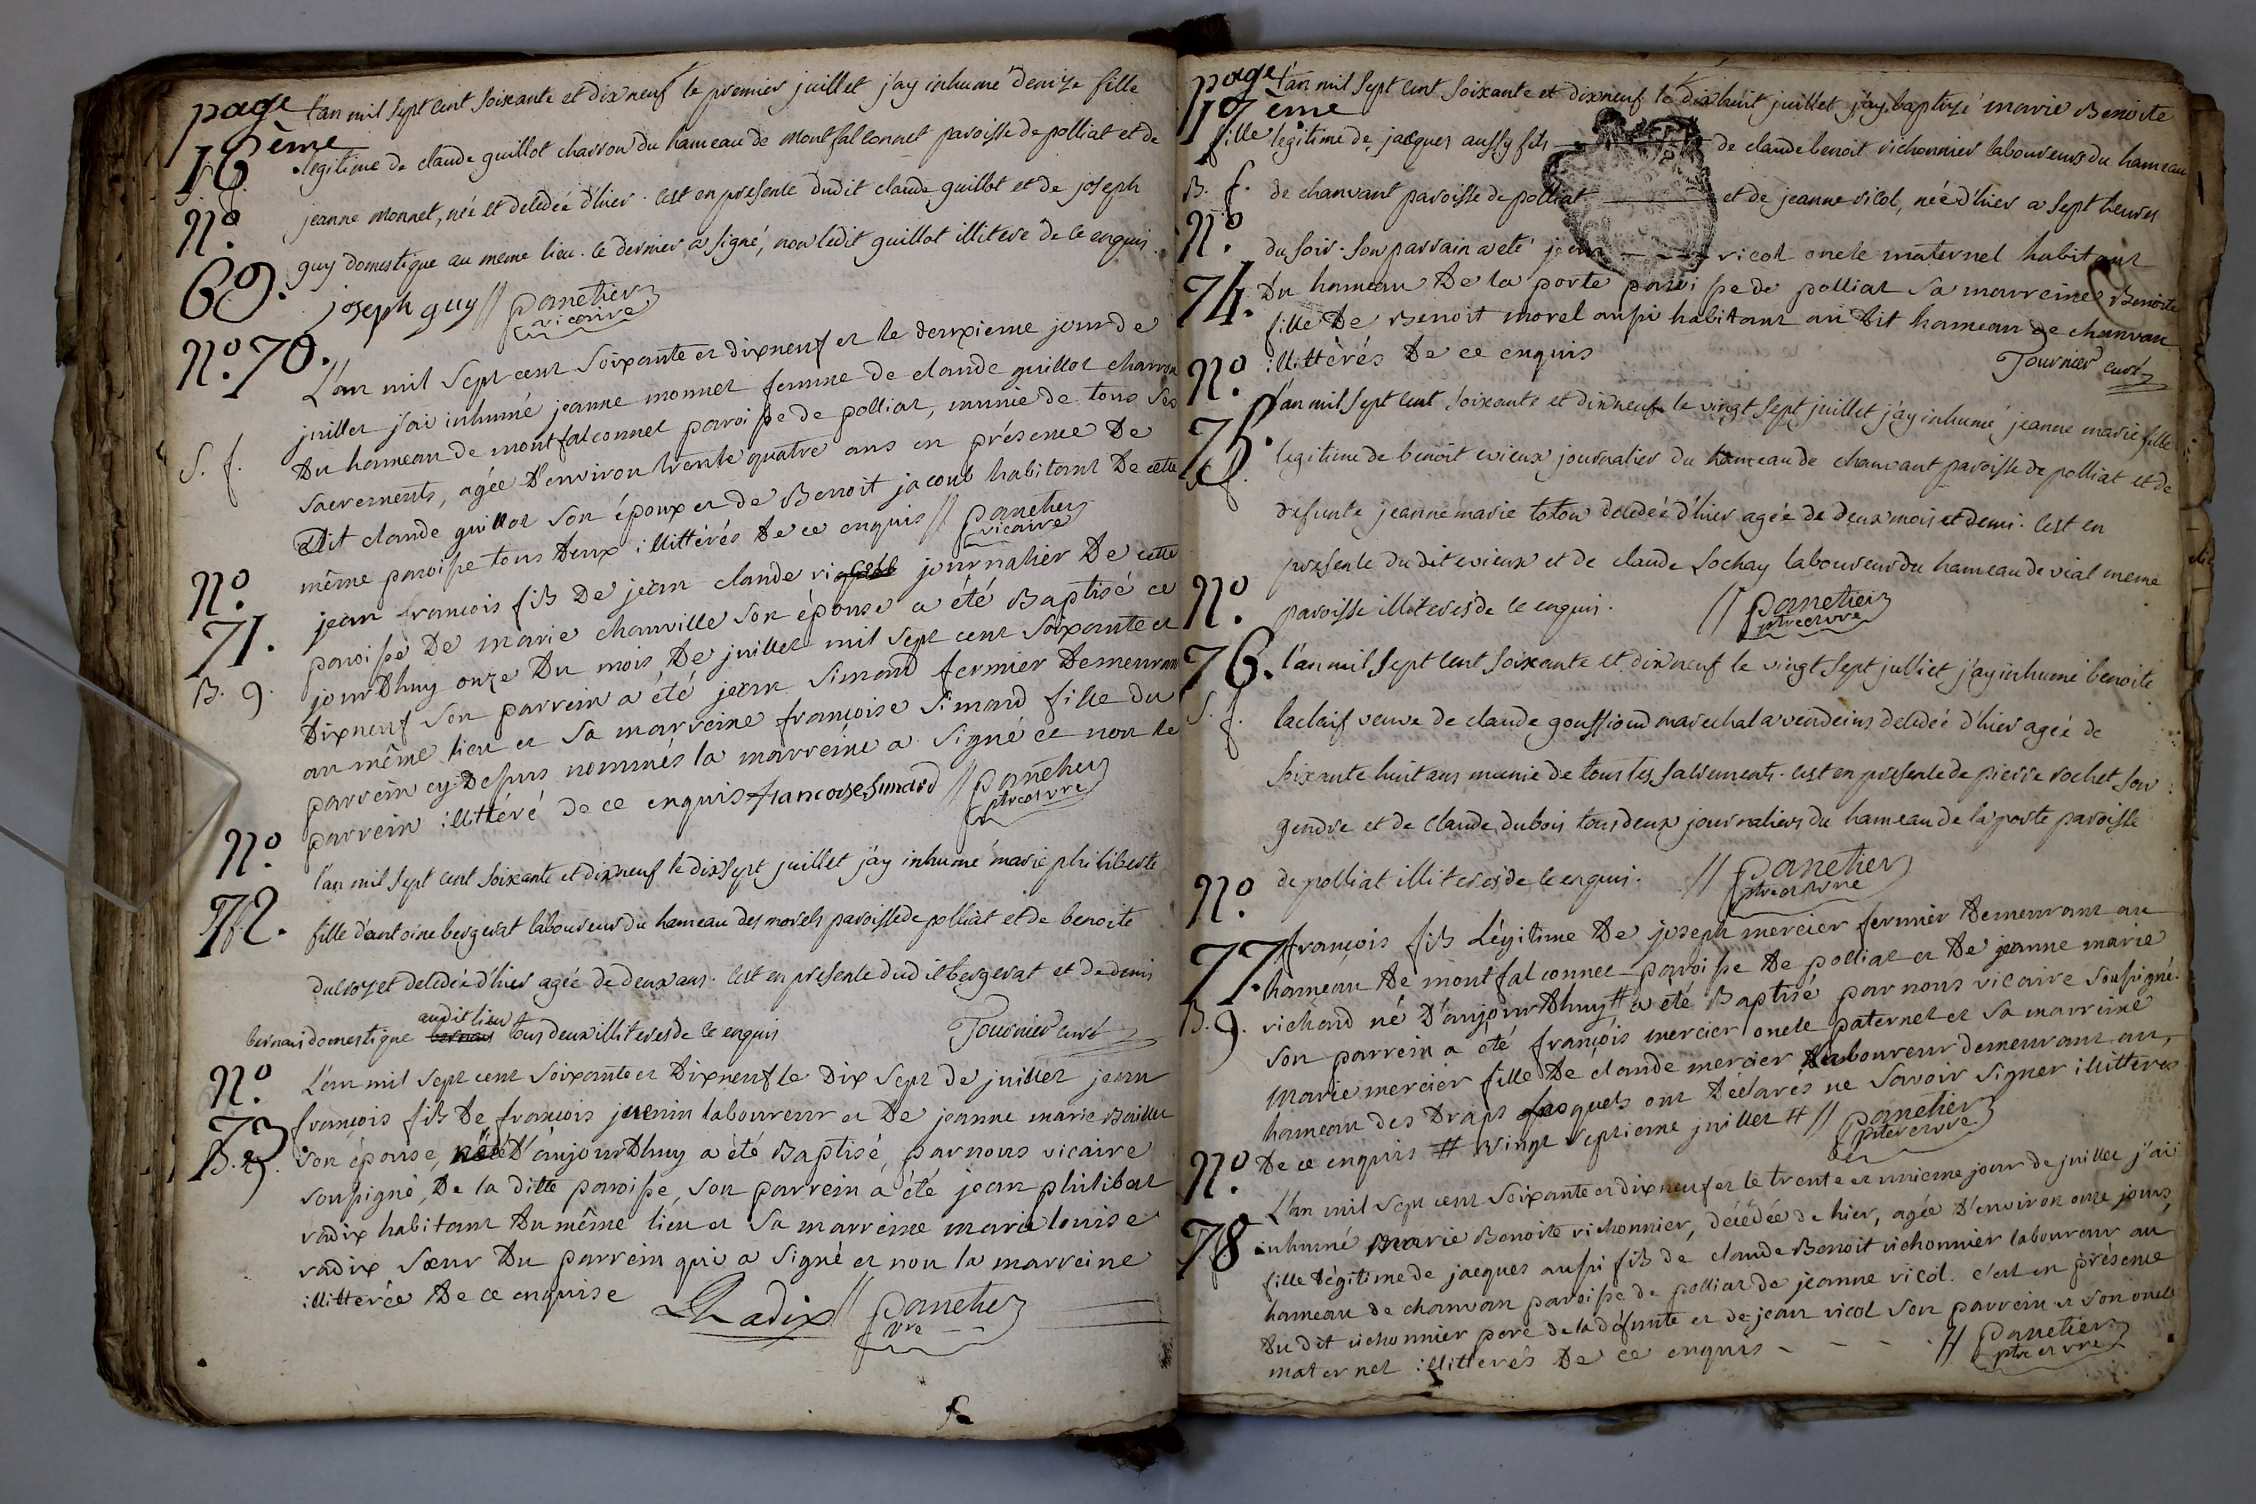 page
16ème
l'an mil sept cent soixante et dix neuf le premier juillet j'ay inhumé denize fille
legitime de claude guillot charron du hameau de montfalconnet paroisse de polliat et de
jeanne monnet, née et decedée d'hier. c'est en presence dudit claude guillot et de joseph
guy domestique au meme lieu. le dernier a signé, non ledit guillot illitere de ce enquis.
N.º
69.
joseph guy // panetier
vicaire
N.º 70.
L'an mil sept cent soixante et dixneuf et le deuxieme jour de
juillet j'ai inhumé jeanne monnet femme de claude guillot charron
S. f.
du hameau de montfalconnet paroisse de polliat, munie de tous ses
sacrements, agée d'environ trente quatre ans en présence de
dit claude guillot son époux et de Benoit jacoub habitant de cette
même paroisse tous deux illittérés de ce enquis // panetier
vicaire
N.º
71.
B. g.
jean françois fils de jean claude journalier de cette
paroisse de marie chanville son épouse a été Baptisé ce
jourdhuy onze du mois de juillet mil sept cent soixante et
dixneuf son parrein a été jean simand fermier demeurant
au même lieu et sa marreine françoise simand fille du
parrein cy-dessus nommés la marreine a signé et non le
parrein illittéré de ce enquis francoise simard // panetier
ptre et vre
N.º
72.
l'an mil sept cent soixante et dixneuf le dixsept juillet j'ay inhumé marie philiberte
fille d'antoine bergerat laboureur du hameau des morels paroisse de polliat et de benoite
ducrozet decedée d'hier agée de deux ans. c'est en presence dudit bergerat et de denis
audit lieu
bernais domestique tous deux illiteres de ce enquis Tournier curé
N.º
73
B. g.
L'an mil sept cent soixante et dixneuf le dix sept de juillet jean
françois fils de françois juenin laboureur et de jeanne marie Baillet
son épouse, né d'aujourdhuy a été Baptisé, par nous vicaire
soussigné, de la ditte paroisse, son parrein a été jean philibert
radix habitant du même lieu et sa marreine marie louise
radix sœur du parrein qui a signé et non la marreine
illitterée de ce enquise Radix // panetier
vre
page
17ème
l'an mil sept cent soixante et dixneuf le dix huit juillet j'ay baptizé marie Benoite
fille legitime de jacques aussy fils de claude benoit vichonnier laboureur du hameau
B. f.
de chanvant paroisse de polliat et de jeanne vicol, née d'hier a sept heures
N.º
74.
du soir. son parrain a eté jean vicol oncle maternel habitant
du hameau de la porte paroisse de polliat sa marreine Benoite
fille de Benoit morel aussi habitant au dit hameau de chanvan
illittérés de ce enquis Tournier curé
N.º
75.
S. f.
l'an mil sept cent soixante et dixneuf le vingt sept juillet j'ay inhumé jeanne marie fille
legitime de benoit evieux journalier du hameau de chanvant paroisse de polliat et de
defunte jeanne marie toton decedée d'hier agée de deux mois et demi. c'est en
presence dudit evieux et de claude Lochay laboureur du hameau de vial meme
paroisse illiterés de ce enquis. // panetier
ptre et vre
N.º
76.
S. f.
l'an mil sept cent soixante et dixneuf le vingt sept julliet j'ay inhumé benoite
laclaif veuve de claude gouffioud marechal a vendeins decedée d'hier agée de
soixante huit ans munie de tous les sacrements. c'est en presence de pierre rochet son
gendre et de claude dubois tous deux journaliers du hameau de la porte paroisse
de polliat illiterés de ce enquis. // panetier
ptre et vre
N.º
77.
B. g.
françois fils légitime de joseph mercier fermier demeurant au
hameau de montfalconnet paroisse de polliat et de jeanne marie
richard né d'aujourdhuy # a été Baptisé par nous vicaire soussigné.
son parrein a été françois mercier oncle paternel et sa marreine
marie mercier fille de claude mercier laboureur demeurant au
hameau des Draps lesquels ont déclarés ne savoir signer illitteres
de ce enquis # vingt septieme juillet # // panetier
ptre et vre
N.º
78.
L'an mil sept cent soixante et dixneuf et le trente et unieme jour de juillet j'ai
inhumé marie Benoite vichonnier, décédée de hier, agée d'environ onze jours,
fille légitime de jacques aussi fils de claude Benoit vichonnier laboureur au
hameau de chanvan paroisse de polliat de jeanne vicol. c'est en présence
du dit vichonnier pere de la défunte et de jean vicol son parrein et son oncle
maternel illitterés de ce enquis - - - // panetier
ptre et vre